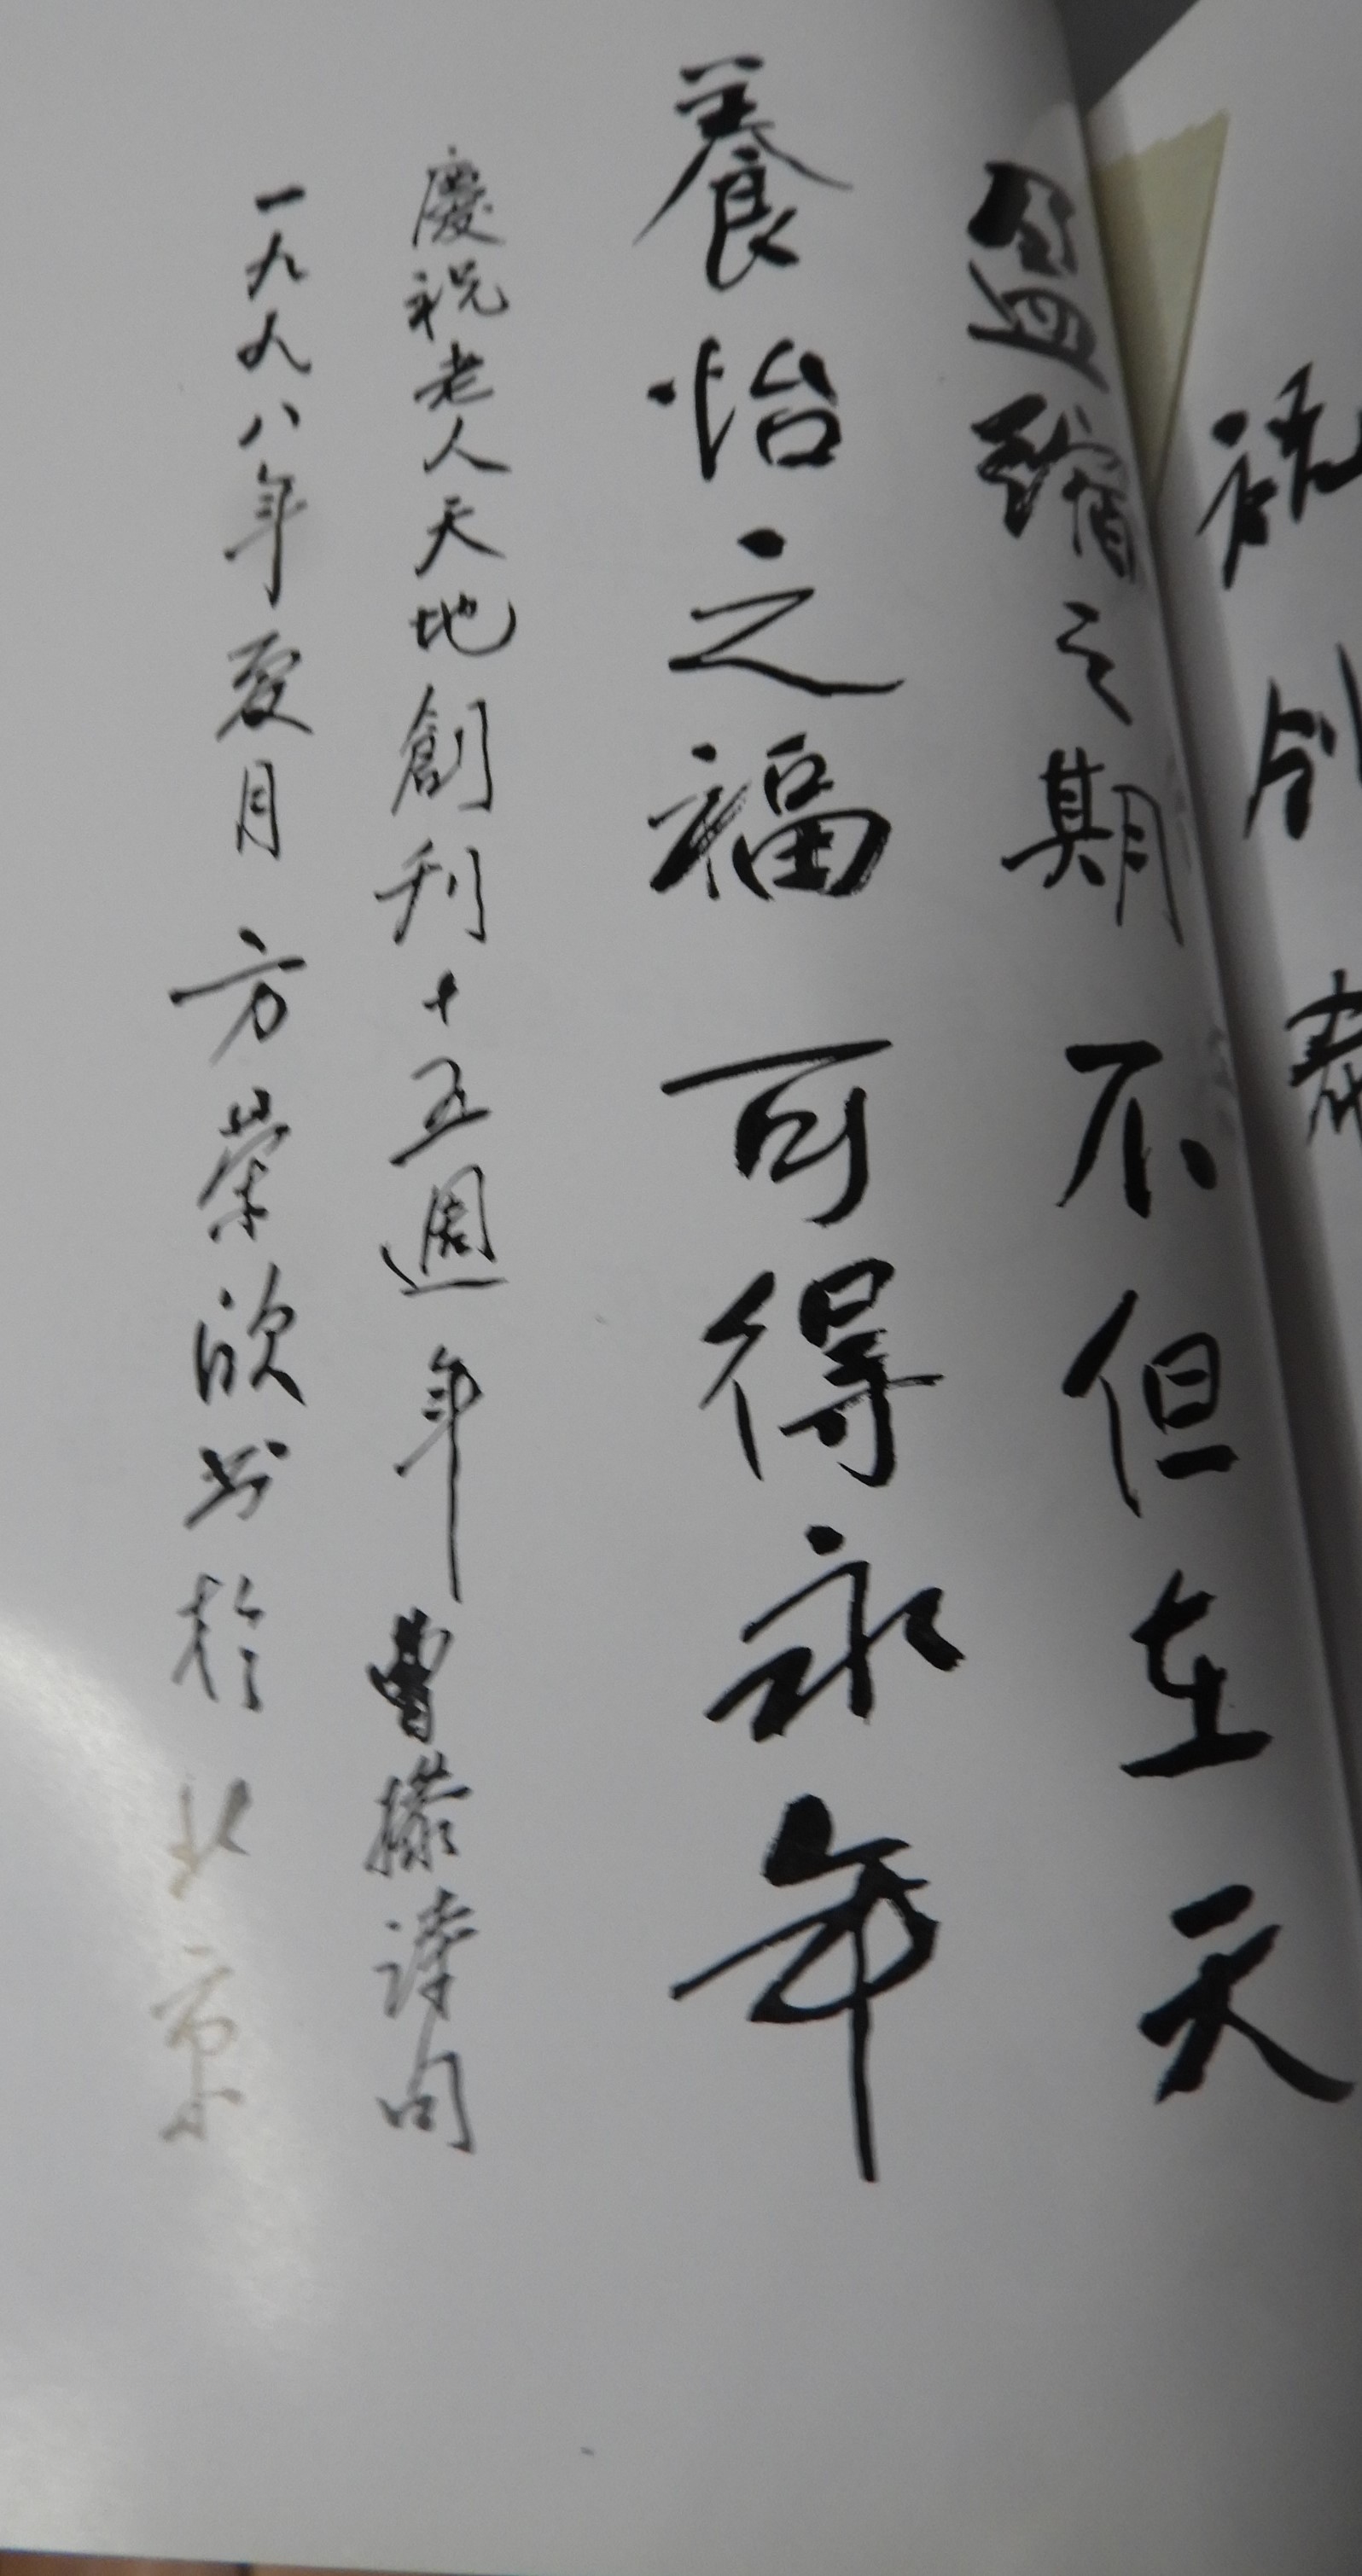 盈縮之期不但在天
養怡之福可得永年
慶祝老人天地創刊十五週年曹操詩句
一九九八年夏月方榮欣书於北京